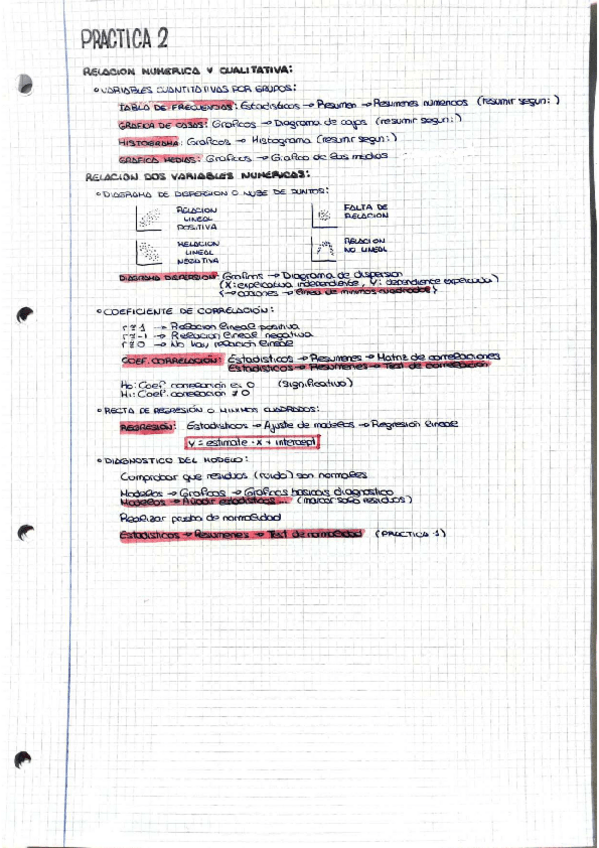 PRACTICA 2
RELACION NUMERICA Y CUALITATIVA:
• VARIABLES CUANTITATIVAS POR GRUPOS:
TABLA DE FRECUENCIAS: Estadisticos → Resumen → Resumenes numericos (resumir segun:)
GRAFICA DE CAJAS: Graficos → Diagrama de cajas (resumir segun:)
HISTOGRAMA: Graficos → Histograma (resumir segun:)
GRAFICA MEDIAS: Graficos → Grafica de las medias
RELACION DOS VARIABLES NUMERICAS:
• DIAGRAMA DE DISPERSION O NUBE DE PUNTOS:
RELACION LINEAL POSITIVA
FALTA DE RELACION
RELACION LINEAL NEGATIVA
RELACION NO LINEAL
DIAGRAMA DISPERSION: Graficos → Diagrama de dispersion
(X: explicativa independiente, Y: dependiente explicada)
(→ opciones → linea de minimos cuadrados)
• COEFICIENTE DE CORRELACIÓN:
r ≈ 1 → Relacion lineal positiva
r ≈ -1 → Relacion lineal negativa
r ≈ 0 → No hay relacion lineal
COEF. CORRELACIÓN: Estadisticos → Resumenes → Matriz de correlaciones
Estadisticos → Resumenes → Test de correlacion
H0: Coef. correlacion es 0 (significativo)
H1: Coef. correlacion ≠ 0
• RECTA DE REGRESIÓN O MINIMOS CUADRADOS:
REGRESIÓN: Estadisticos → Ajuste de modelos → Regresión lineal
Y = estimate · X + intercept
• DIAGNOSTICO DEL MODELO:
Comprobar que residuos (ruido) son normales
Modelos → Graficas → Graficas basicas diagnostico
Modelos → Añadir estadisticos... (marcar solo residuos)
Realizar prueba de normalidad
Estadisticos → Resumenes → Test de normalidad (PRACTICA 1)